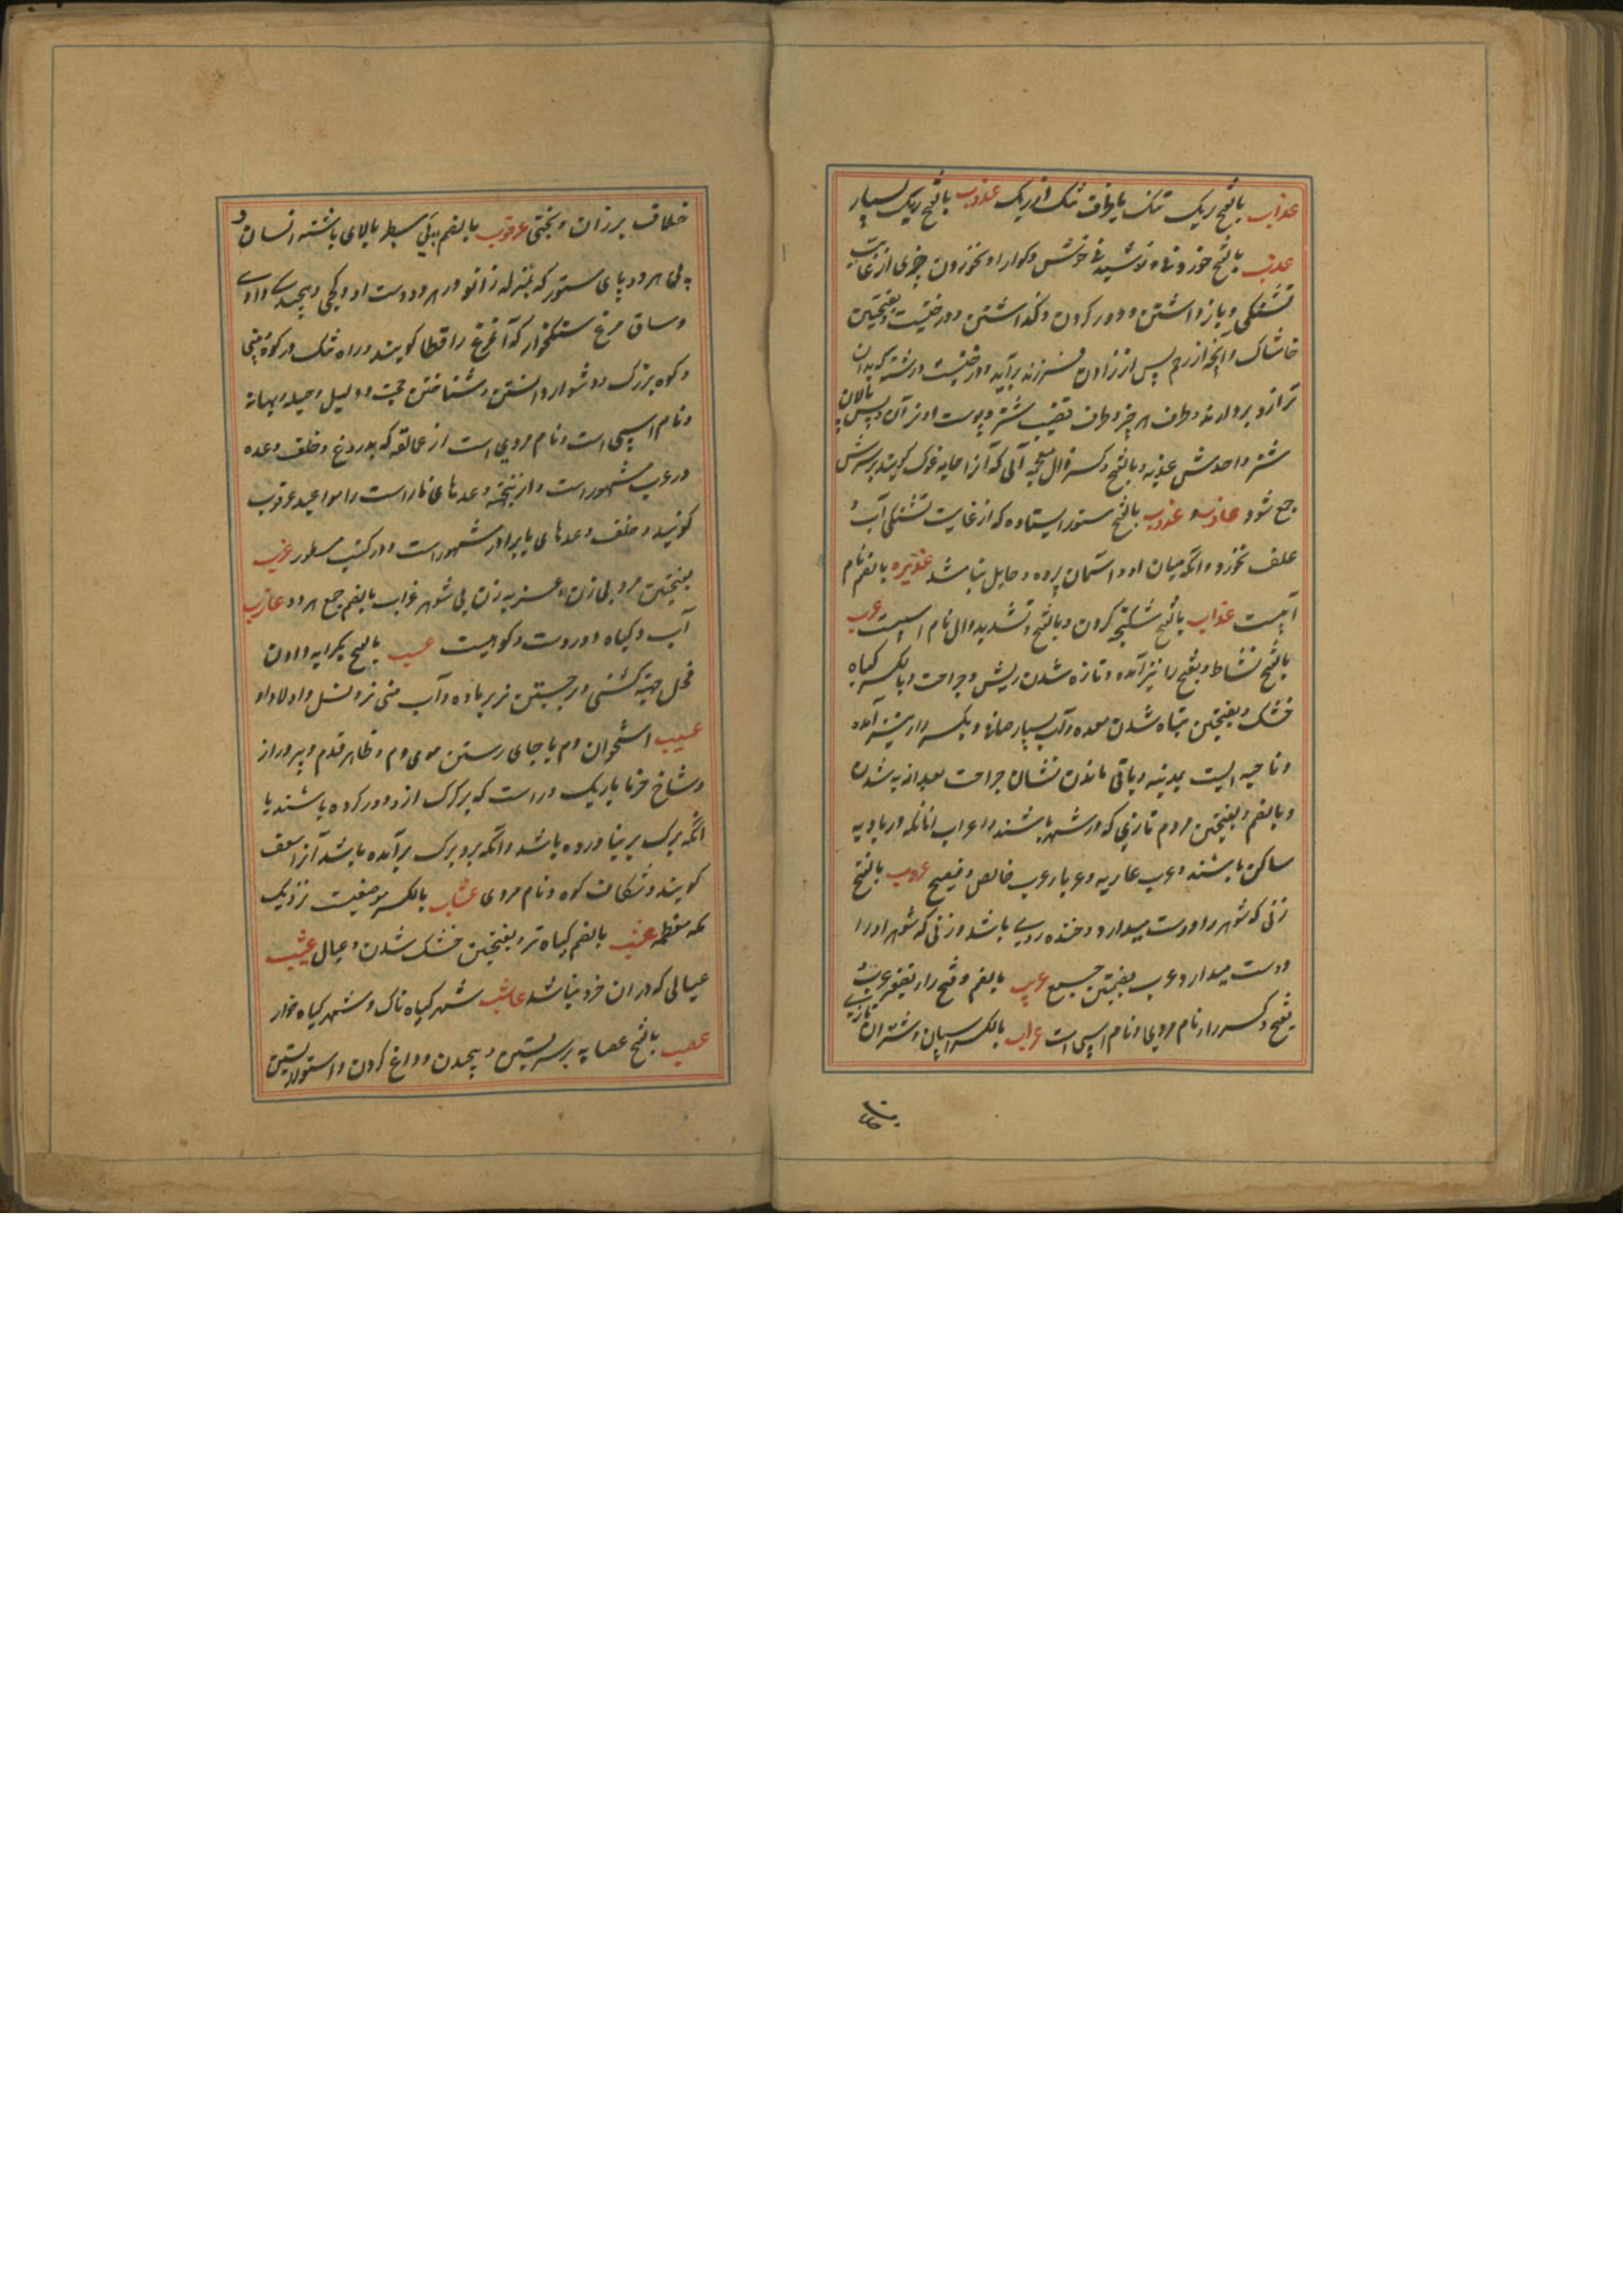 عداب بالفتح ریک تنک یا طرف تنک از ریک عدوب بالفتح ریک بسیار
عذب بالفتح خوردنی و نوشیدنی خوش و کوارا و نخوردن چیزی از غایت
تشنکی و باز داشتن و دور کردن و کذاشتن و درختیست و بفتحتین
خاشاک و آنچه از رحم پس از زادن فرزند برآید و درختیست و رشته که بدان
ترازو بردارند و طرف هر چیز و طرف قضیب شتر و پوست
شتر واحدش عذبه و بالفتح و کسر ذال آبی که آنرا جامه غوک کویند بر سرش
جمع شود عاذب و عذوب بالفتح ستور ایستاده که از غایت تشنکی آب و
علف نخورد و آنکه میان او و آسمان پرده و حایل نباشد بالضم نام
آبیست عذاب بالفتح شکنجه کردن و بالفتح و تشدید ذال نام اسپیست عرب
بالفتح نشاط و بفتح را نیز آمده و تازه شدن ریش و جراحت و بالکسر کیاه
خشک و بفتحتین تباه شدن معده و آب بسیار صاف و بکسر را نیز آمده
و ناحیه ایست بمدینه و باقی ماندن نشان جراحت بعد از به شدن
و بالضم و بفتحتین مردم تازی که در شهر باشند و اعراب آنانکه در بادیه
ساکن باشند و عرب عاربه و عرباء عرب خالص و فصیح عروب بالفتح
زنی که شوهر را دوست میدارد و خنده روی باشد و زنی که شوهر او را
دوست میدارد و عرب بضمتین جمع عریب بالضم و فتح را تصغیر عرب
بفتح و کسر را نام مردی و نام اسپی است عراب بالکسر اسپان و شتران تازی
خلاف برزان و بختی عرقوب بالضم پی سطبر بالای پاشنه انسان و
پی هر دو پای ستور که بمنزله زانو در هر دو دست او و کجی و پیچیدکی وادی
و ساق مرغ سنکخوار که آن مرغ را قطا کویند و راه تنک در کوه
و کوه بزرک و دشوار و دانستن و شناختن حجت و دلیل و حیله و بهانه
و نام اسپی است و نام مردی است از عمالقه که بدروغ و خلف وعده
در عرب مشهور است و ازینجهت وعدهای ناراست را مواعید عرقوب
کویند و خلف وعدهای با برادر مشهور است و در کتب مسطور عزب
بفتحتین مرد بی زن و عزبه زن بی شوهر عزاب بالضم جمع هر دو عازب
آب و کیاه دور دست و کوهیست عسب بالفتح بکرایه دادن
فحل بجهة کشنی و برجستن نر بر ماده و آب منی نر و نسل و اولاد او
عسیب استخوان دم یا جای رستن موی دم و ظاهر قدم و پر دراز
و شاخ خرما باریک و راست که برکش از و دور کرده باشند یا
آنکه برک بر نیاورده باشد و آنکه برو برک برآمده باشد آنرا سعف
کویند و شکاف کوه و نام مردی عشاب بالکسر موضعیست نزدیک
مکه معظمه عشب بالضم کیاه تر و بفتحتین خشک شدن و عیال عشب
عیالی که در ان خرد نباشد عاشب شهر کیاه ناک و شتر کیاه خوار
عصب بالفتح عصابه بر سر بستن و پیچیدن و داغ کردن و استوار بستن